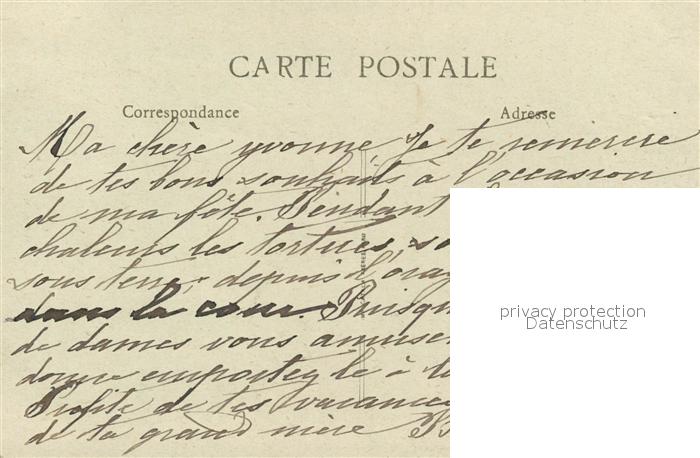 CARTE POSTALE
Correspondance Adresse
Ma chère yvonne, Je te remercie
de tes bons souhaits à l'occasion
de ma fête. Pendant
chaleurs les tortues, so
sous terre, depuis l'orag
dans la cour Puisqu
de dames vous amuse
donne emportez le à
Profite de tes vacances
de ta grand mère B
privacy protection
Datenschutz